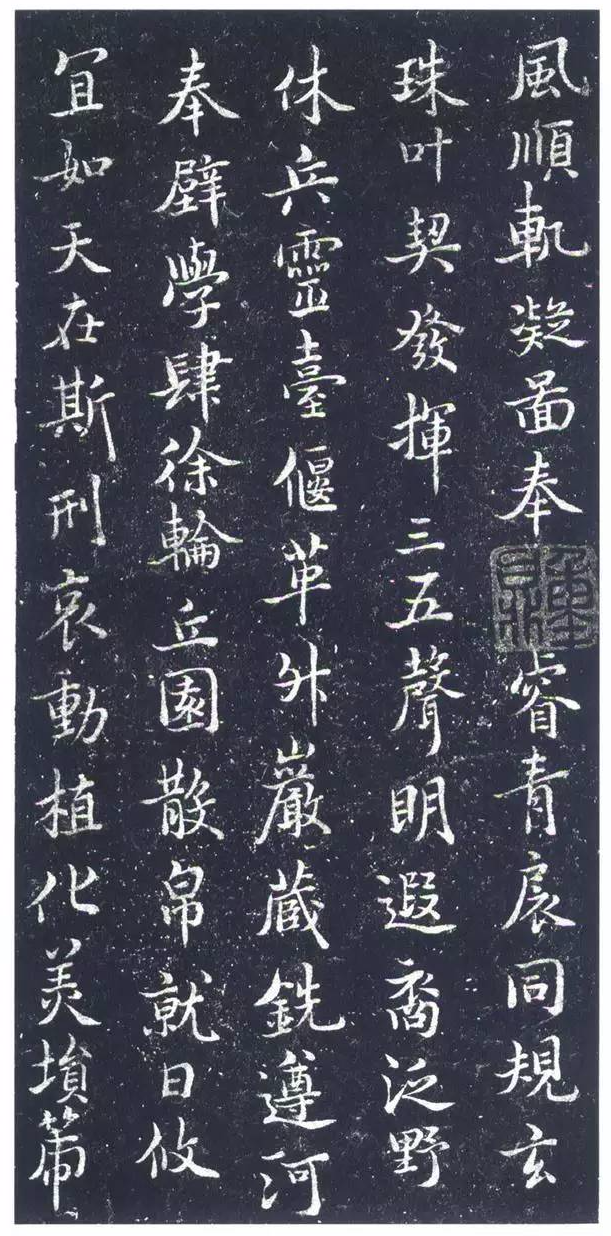 風順軌凝啚奉睿青扆同規玄
珠叶契發揮三五聲明遐裔泛野
休兵靈臺偃革升巖蔵銑遵河
奉璧學肆徐輪丘園散帛就日攸
冝如天在斯刑哀動植化羙塤